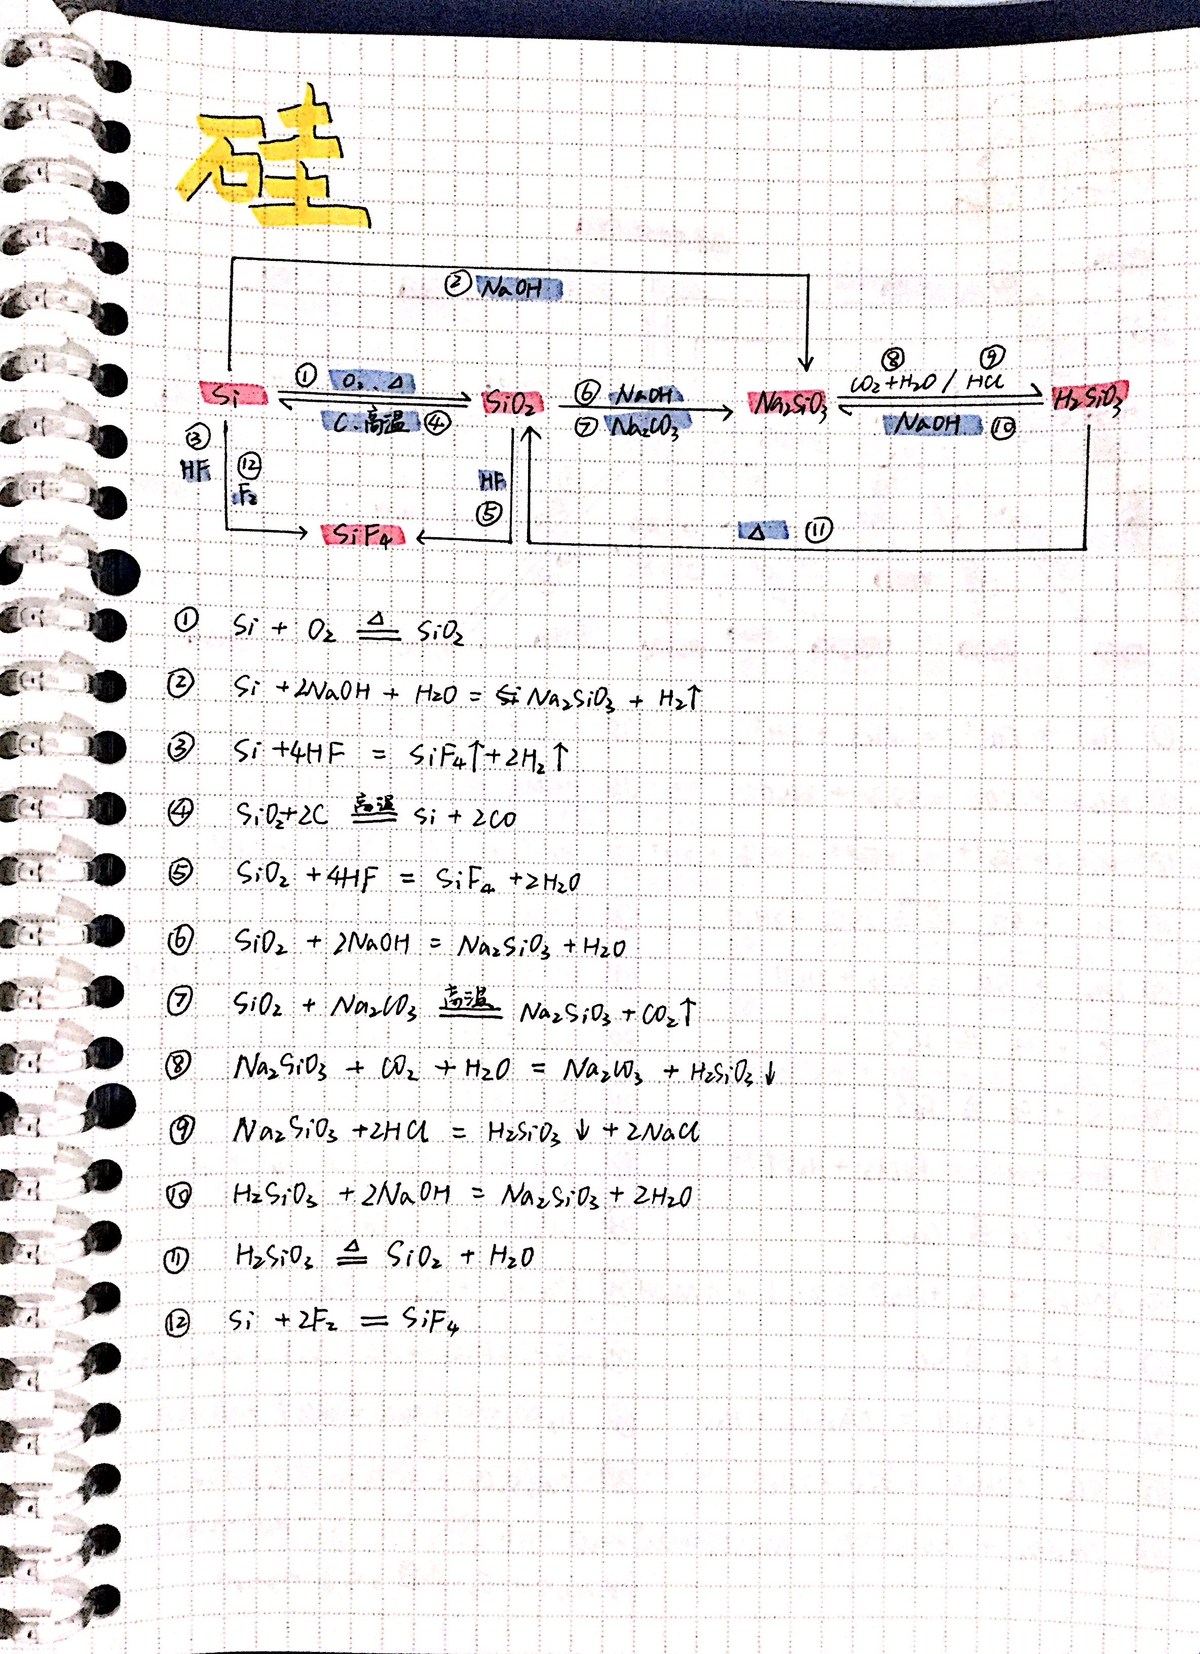 硅
② NaOH
① O₂、△
⑧ ⑨
CO₂+H₂O / HCl
Si SiO₂ ⑥ NaOH Na₂SiO₃ H₂SiO₃
C、高温 ④ ⑦ Na₂CO₃ NaOH ⑩
③ HF ⑫ F₂ HF ⑤
SiF₄ △ ⑪
① Si + O₂ ≜ SiO₂
② Si + 2NaOH + H₂O = Na₂SiO₃ + H₂↑
③ Si + 4HF = SiF₄↑ + 2H₂↑
④ SiO₂ + 2C 高温 Si + 2CO
⑤ SiO₂ + 4HF = SiF₄ + 2H₂O
⑥ SiO₂ + 2NaOH = Na₂SiO₃ + H₂O
⑦ SiO₂ + Na₂CO₃ 高温 Na₂SiO₃ + CO₂↑
⑧ Na₂SiO₃ + CO₂ + H₂O = Na₂CO₃ + H₂SiO₃↓
⑨ Na₂SiO₃ + 2HCl = H₂SiO₃↓ + 2NaCl
⑩ H₂SiO₃ + 2NaOH = Na₂SiO₃ + 2H₂O
⑪ H₂SiO₃ ≜ SiO₂ + H₂O
⑫ Si + 2F₂ = SiF₄